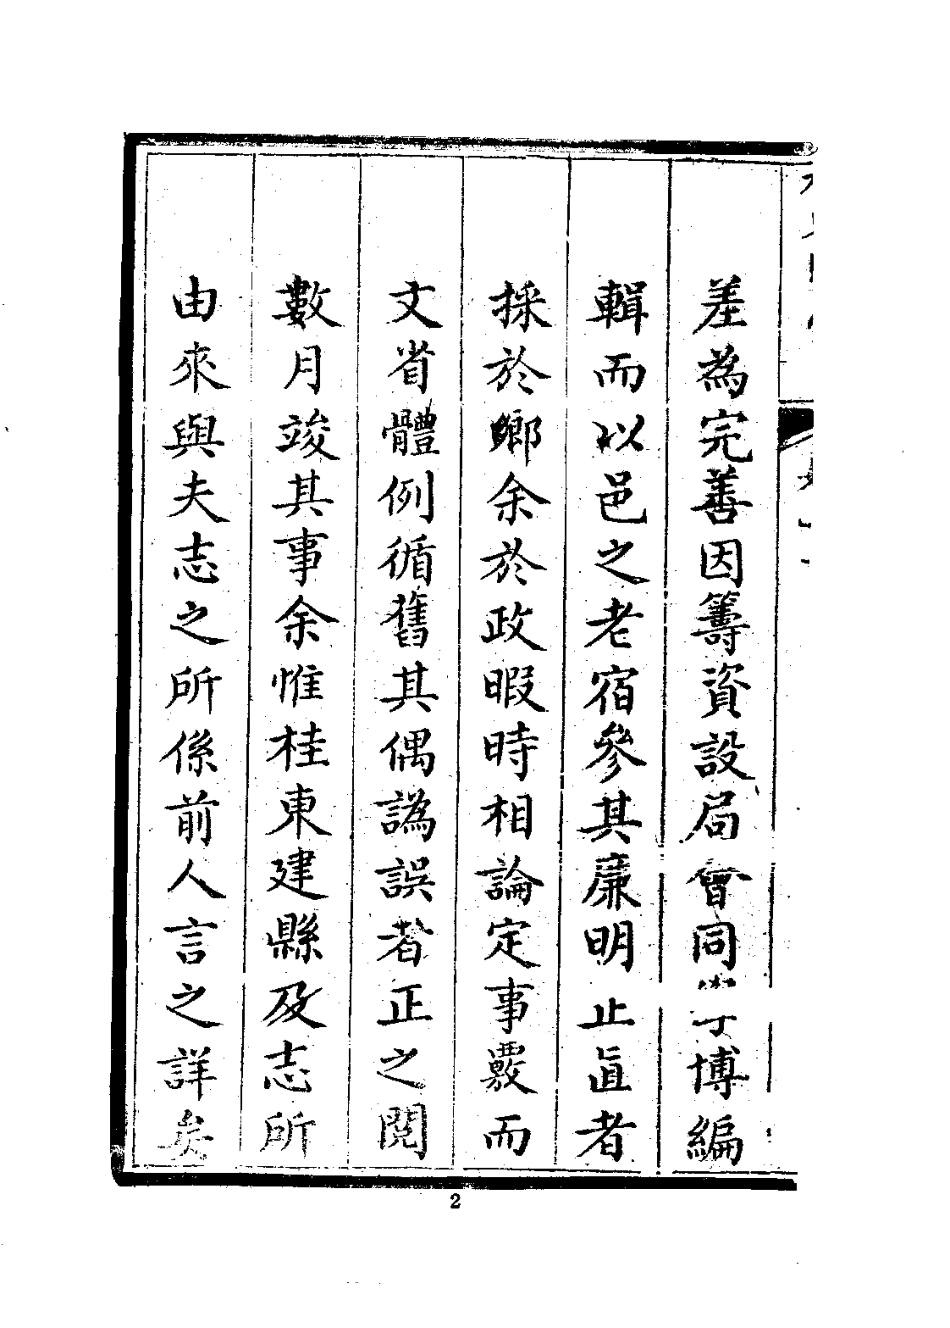 差為完善因籌資設局會同學博編
輯而以邑之老宿參其廉明止直者
採於鄉余於政暇時相論定事覈而
文省體例循舊其偶譌誤者正之閱
數月竣其事余惟桂東建縣及志所
由來與夫志之所係前人言之詳矣
2